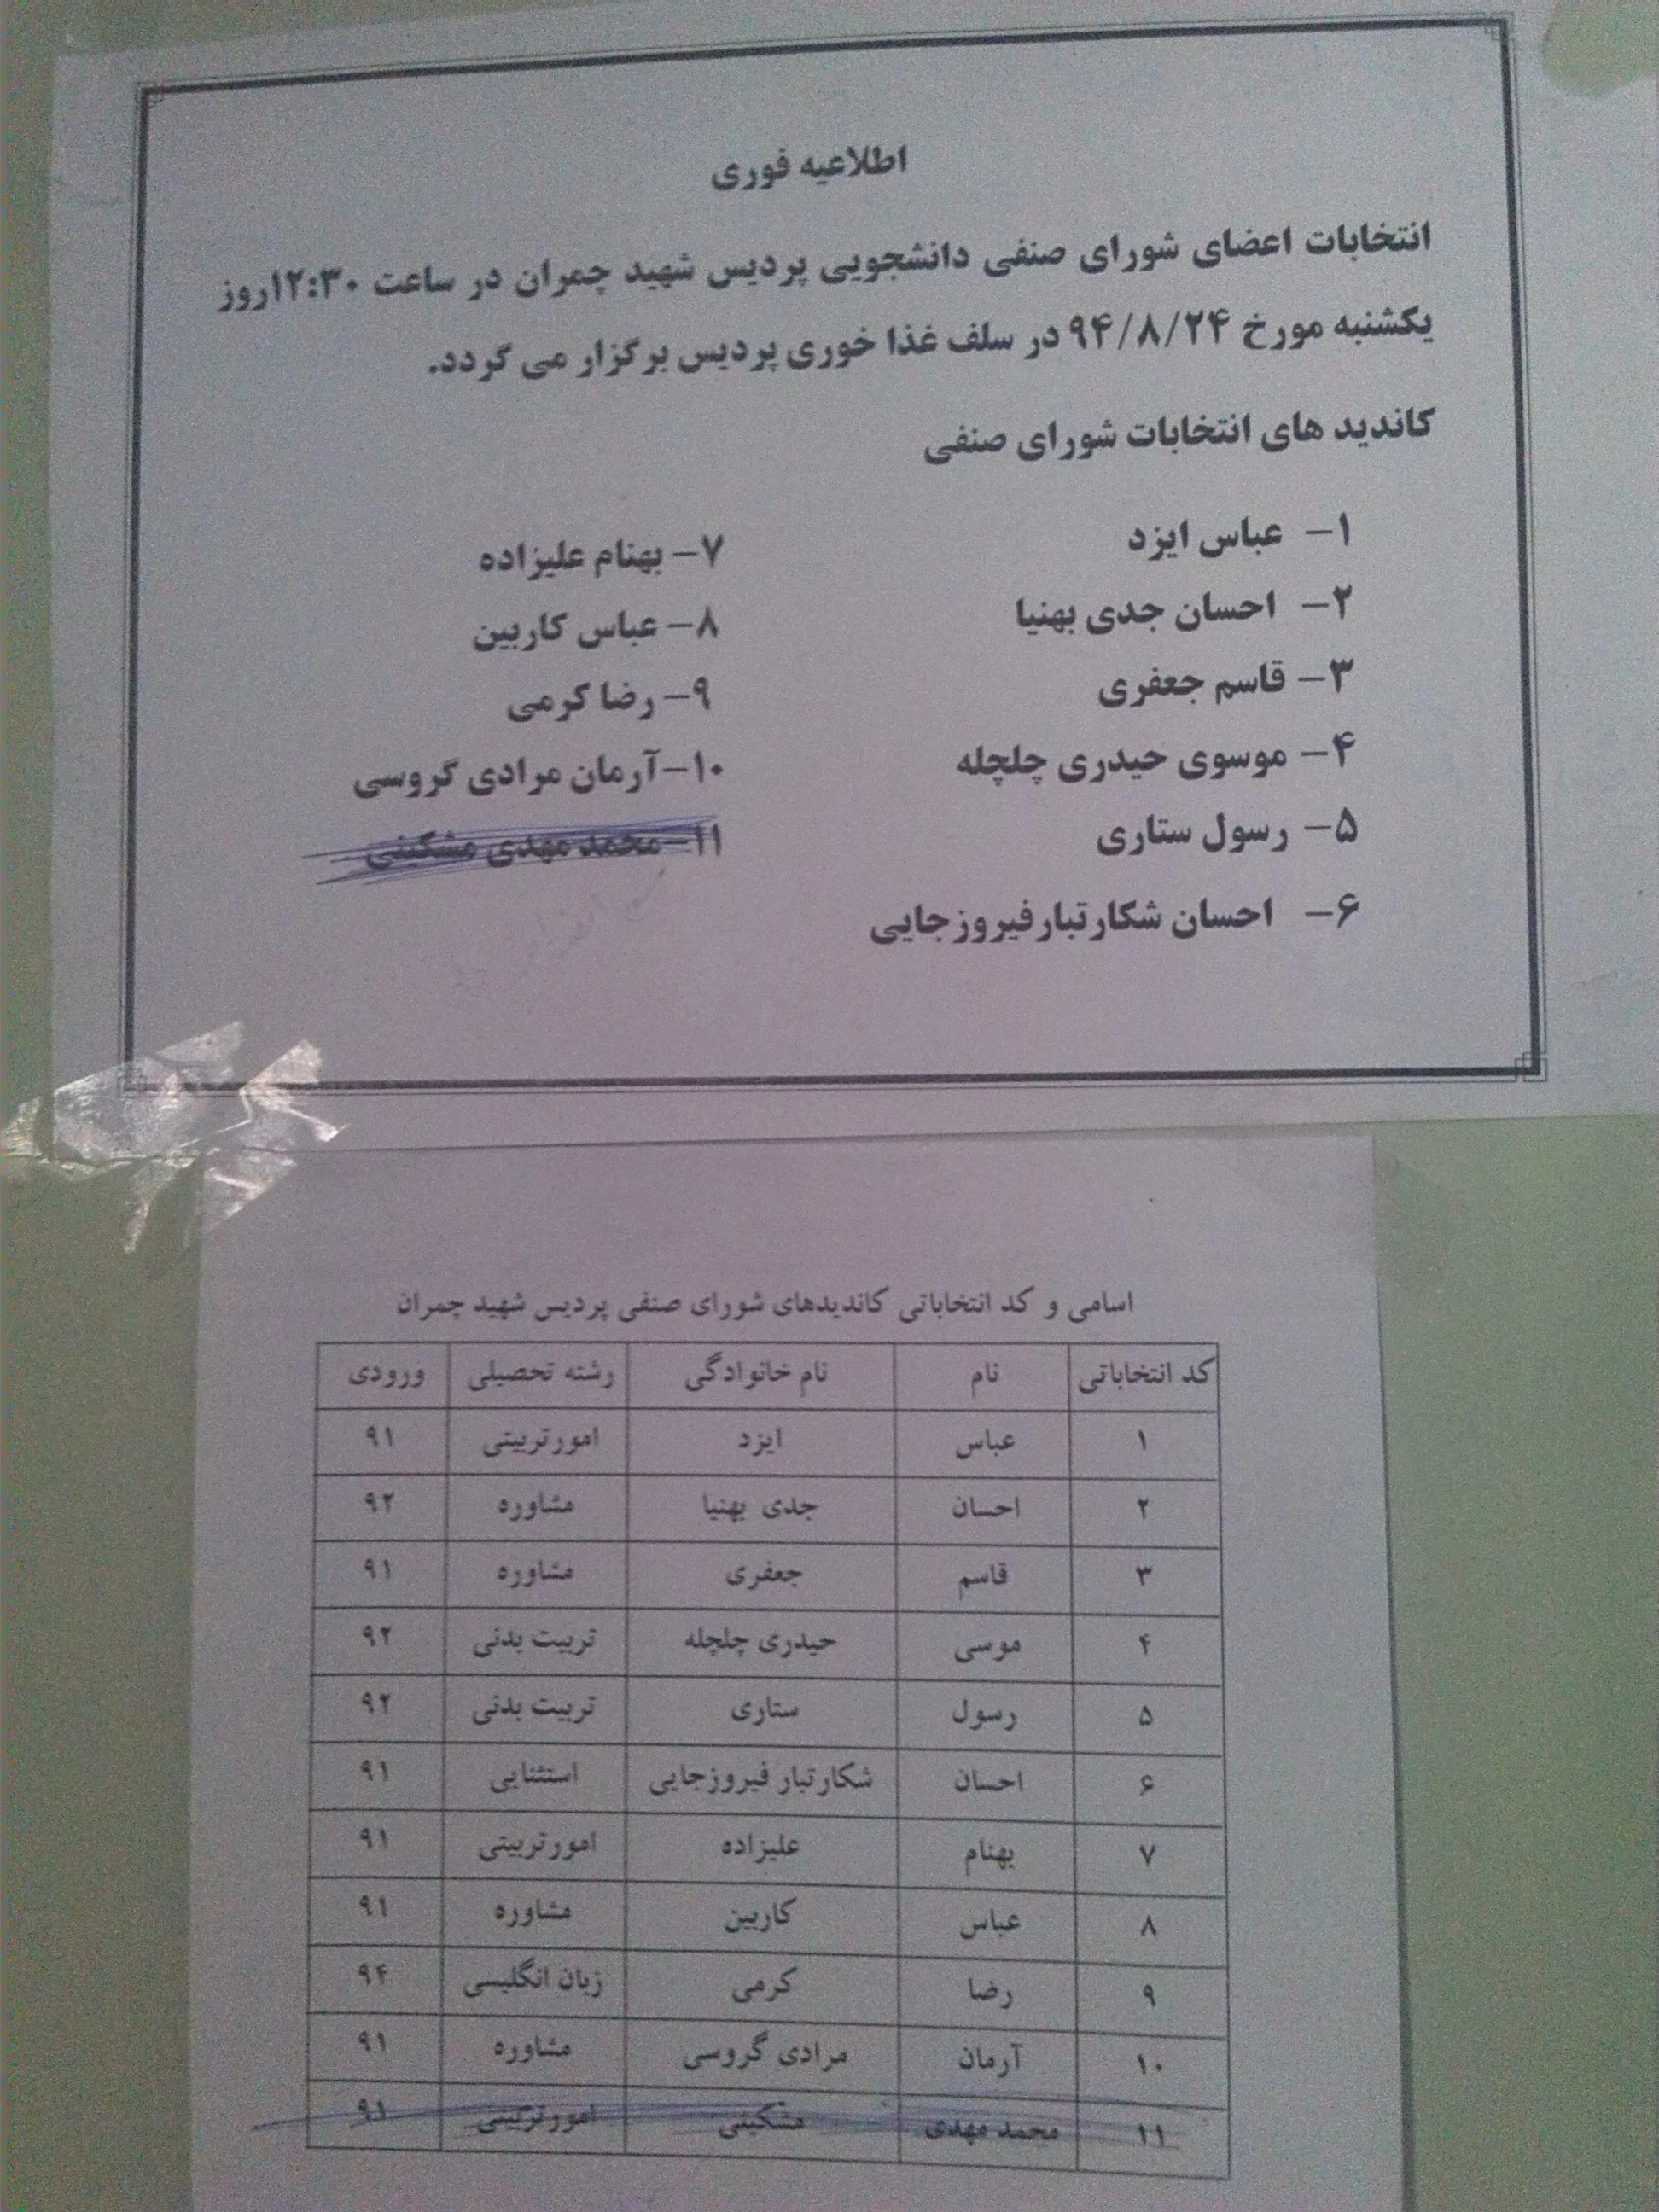 اطلاعیه فوری
انتخابات اعضای شورای صنفی دانشجویی پردیس شهید چمران در ساعت ۱۲:۳۰روز
یکشنبه مورخ ۹۴/۸/۲۴ در سلف غذا خوری پردیس برگزار می گردد.
کاندید های انتخابات شورای صنفی
۱- عباس ایزد
۲- احسان جدی بهنیا
۳- قاسم جعفری
۴- موسوی حیدری چلچله
۵- رسول ستاری
۶- احسان شکارتبارفیروزجایی
۷- بهنام علیزاده
۸- عباس کاربین
۹- رضا کرمی
۱۰-آرمان مرادی گروسی
۱۱-محمد مهدی مشکینی
اسامی و کد انتخاباتی کاندیدهای شورای صنفی پردیس شهید چمران
کد انتخاباتی نام نام خانوادگی رشته تحصیلی ورودی
۱ عباس ایزد امورتربیتی ۹۱
۲ احسان جدی بهنیا مشاوره ۹۲
۳ قاسم جعفری مشاوره ۹۱
۴ موسی حیدری چلچله تربیت بدنی ۹۲
۵ رسول ستاری تربیت بدنی ۹۲
۶ احسان شکارتبار فیروزجایی استثنایی ۹۱
۷ بهنام علیزاده امورتربیتی ۹۱
۸ عباس کاربین مشاوره ۹۱
۹ رضا کرمی زبان انگلیسی ۹۴
۱۰ آرمان مرادی گروسی مشاوره ۹۱
۱۱ محمد مهدی مشکینی امورتربیتی ۹۱